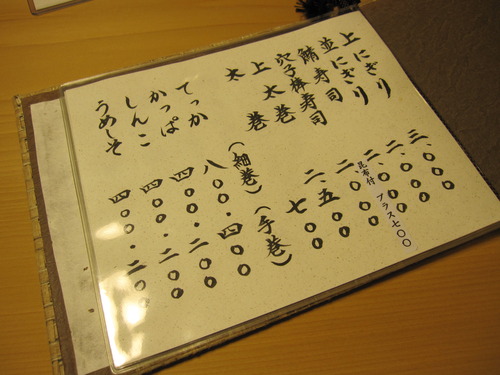 上にぎり 三、〇〇〇
並にぎり 二、〇〇〇
鯖寿司 二、〇〇〇
昆布付 プラス七〇〇
穴子棒寿司 二、五〇〇
上太巻
太巻 七〇〇
(細巻) (手巻)
てっか 八〇〇・四〇〇
かっぱ 四〇〇・二〇〇
しんこ 四〇〇・二〇〇
うめしそ 四〇〇・二〇〇